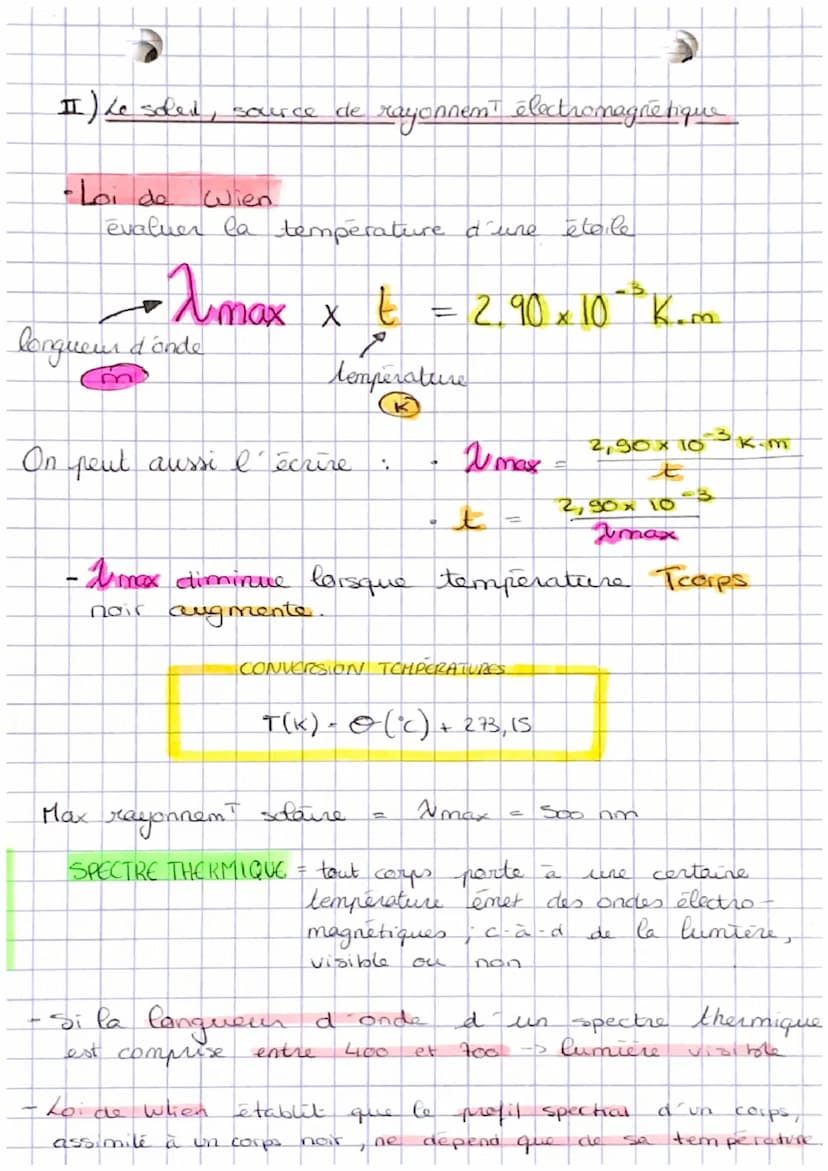 II) Le soleil, source de rayonnemT électromagnétique
- Loi de Wien
évaluer la température d'une étoile
λmax x t = 2.90 x 10⁻³ K.m
longueur d'onde
m
température
K
On peut aussi l'écrire : · λmax = 2,90 x 10⁻³ K.m / t
· t = 2,90 x 10⁻³ / λmax
- λmax diminue lorsque température Tcorps
noir augmente.
CONVERSION TEMPÉRATURES
T(K) = θ(°C) + 273,15
Max rayonnemT solaire = λmax = 500 nm
SPECTRE THERMIQUE = tout corps porté à une certaine
température émet des ondes électro-
magnétiques ; c-à-d de la lumière,
visible ou non
- Si la longueur d'onde d'un spectre thermique
est comprise entre 400 et 700 -> lumière visible
- Loi de Wien établit que le profil spectral d'un corps,
assimilé à un corps noir, ne dépend que de sa température.